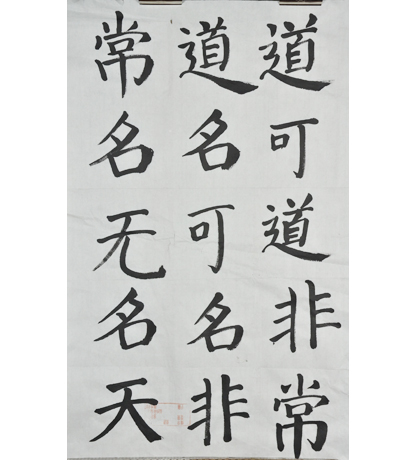 道可道非常
道名可名非
常名无名天